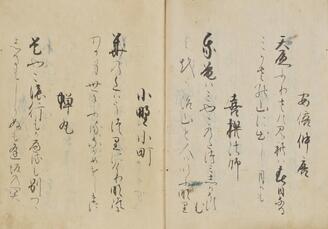 安倍仲麿
天原ふりさけみれは春日なる
みかさの山に出し月かも
喜撰法師
我庵はみやこのたつみしかそすむ
世をうち山と人はいふなり
小野小町
花の色はうつりにけりな
わか身世にふるなかめせしまに
蝉丸
是やこの行もかへるも別つゝ
しるもしらぬも逢坂の関